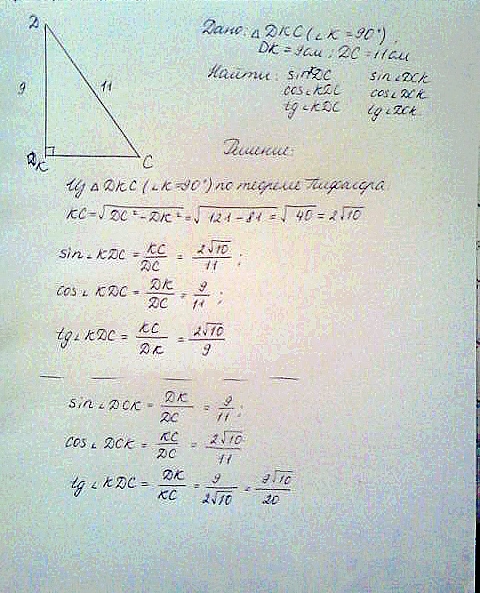 D
9
11
K
C
Дано: △DKC (∠K=90°),
DK=9см; DC=11см
Найти: sin∠DC sin∠DCK
cos∠KDC cos∠DCK
tg∠KDC tg∠DCK
Решение:
Из △DKC (∠K=90°) по теореме Пифагора
KC=√DC²-DK²=√121-81=√40=2√10
sin∠KDC=KC/DC=2√10/11;
cos∠KDC=DK/DC=9/11;
tg∠KDC=KC/DK=2√10/9
sin∠DCK=DK/DC=9/11;
cos∠DCK=KC/DC=2√10/11
tg∠KDC=DK/KC=9/2√10=9√10/20